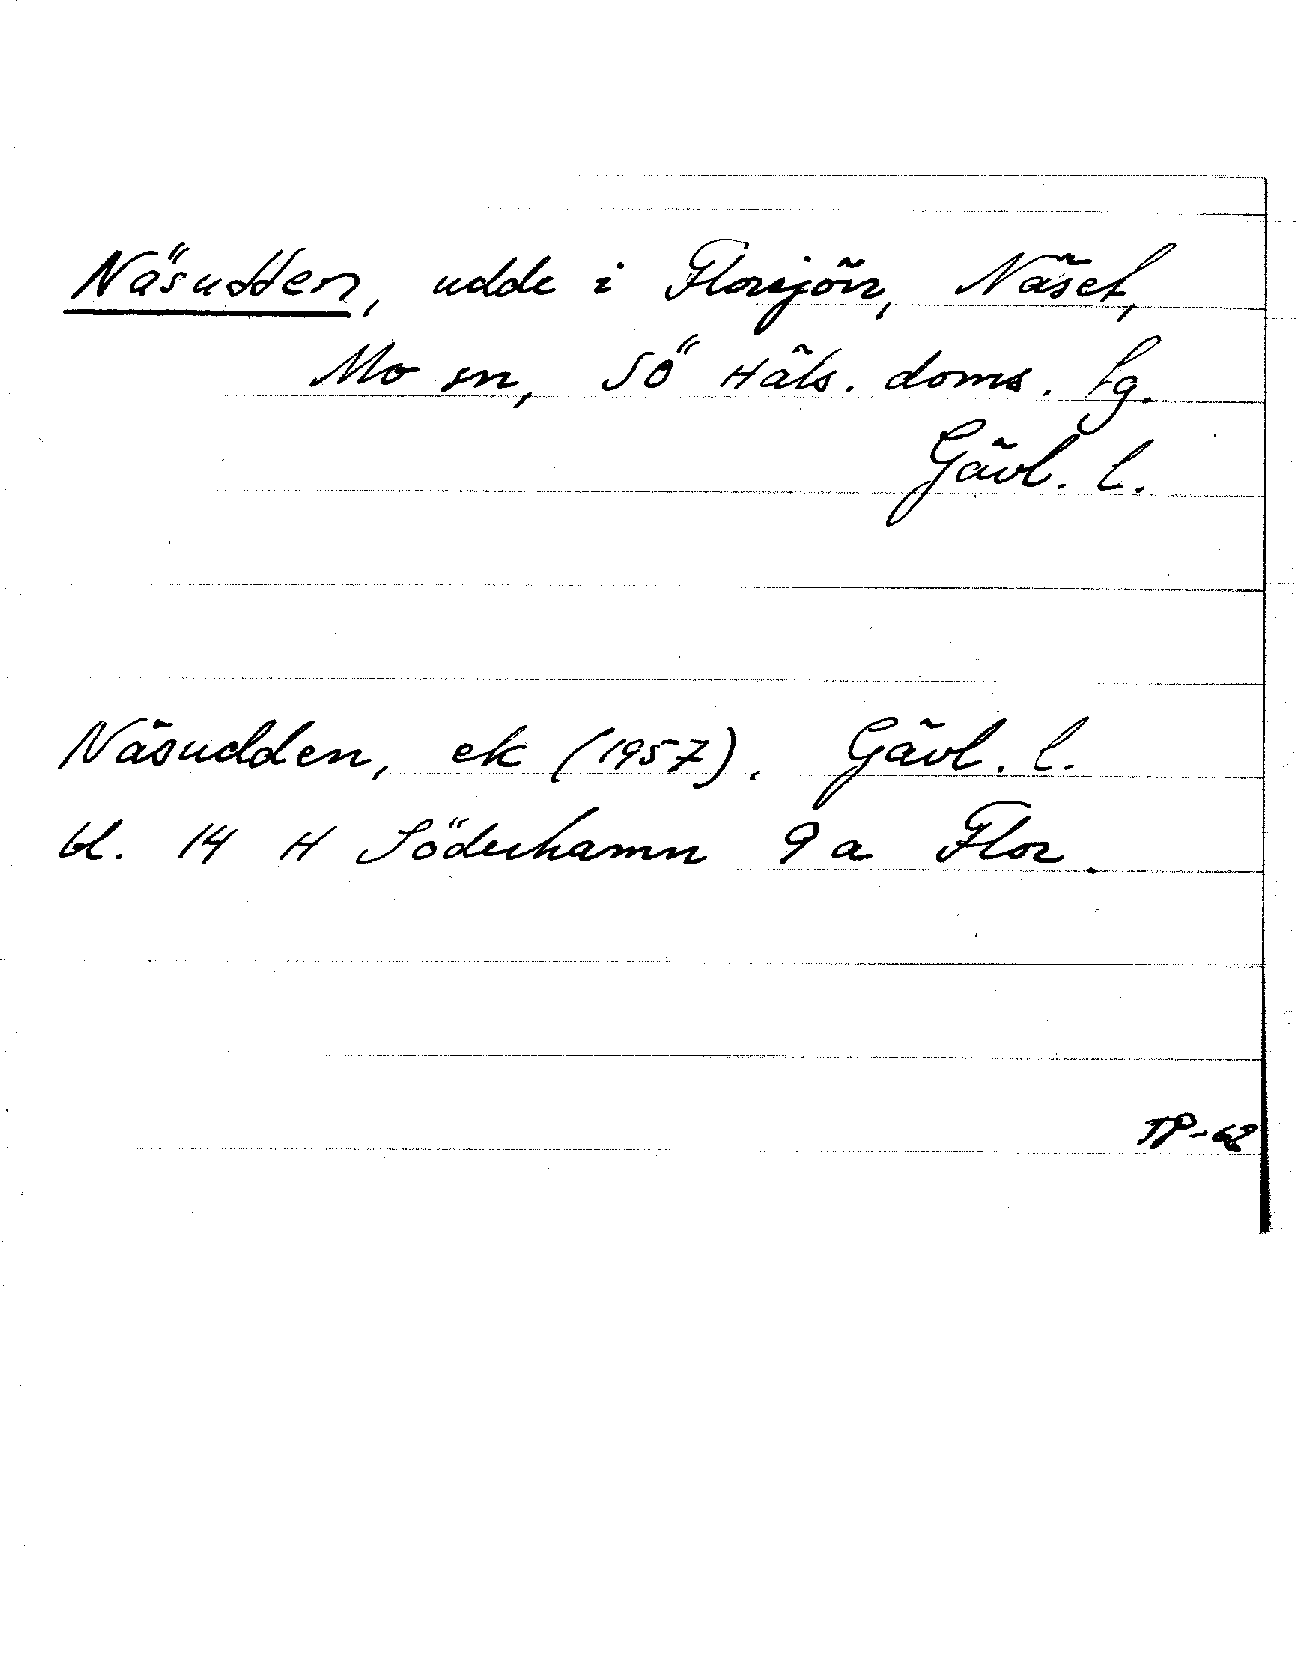 Näsudden, udde i Florsjön, Näset,
Mo sn, Sö Häls. doms. fg.
Gävl. l.
Näsudden, ek (1957). Gävl. l.
bl. 14 H Söderhamn 9 a Flor.
TP-62